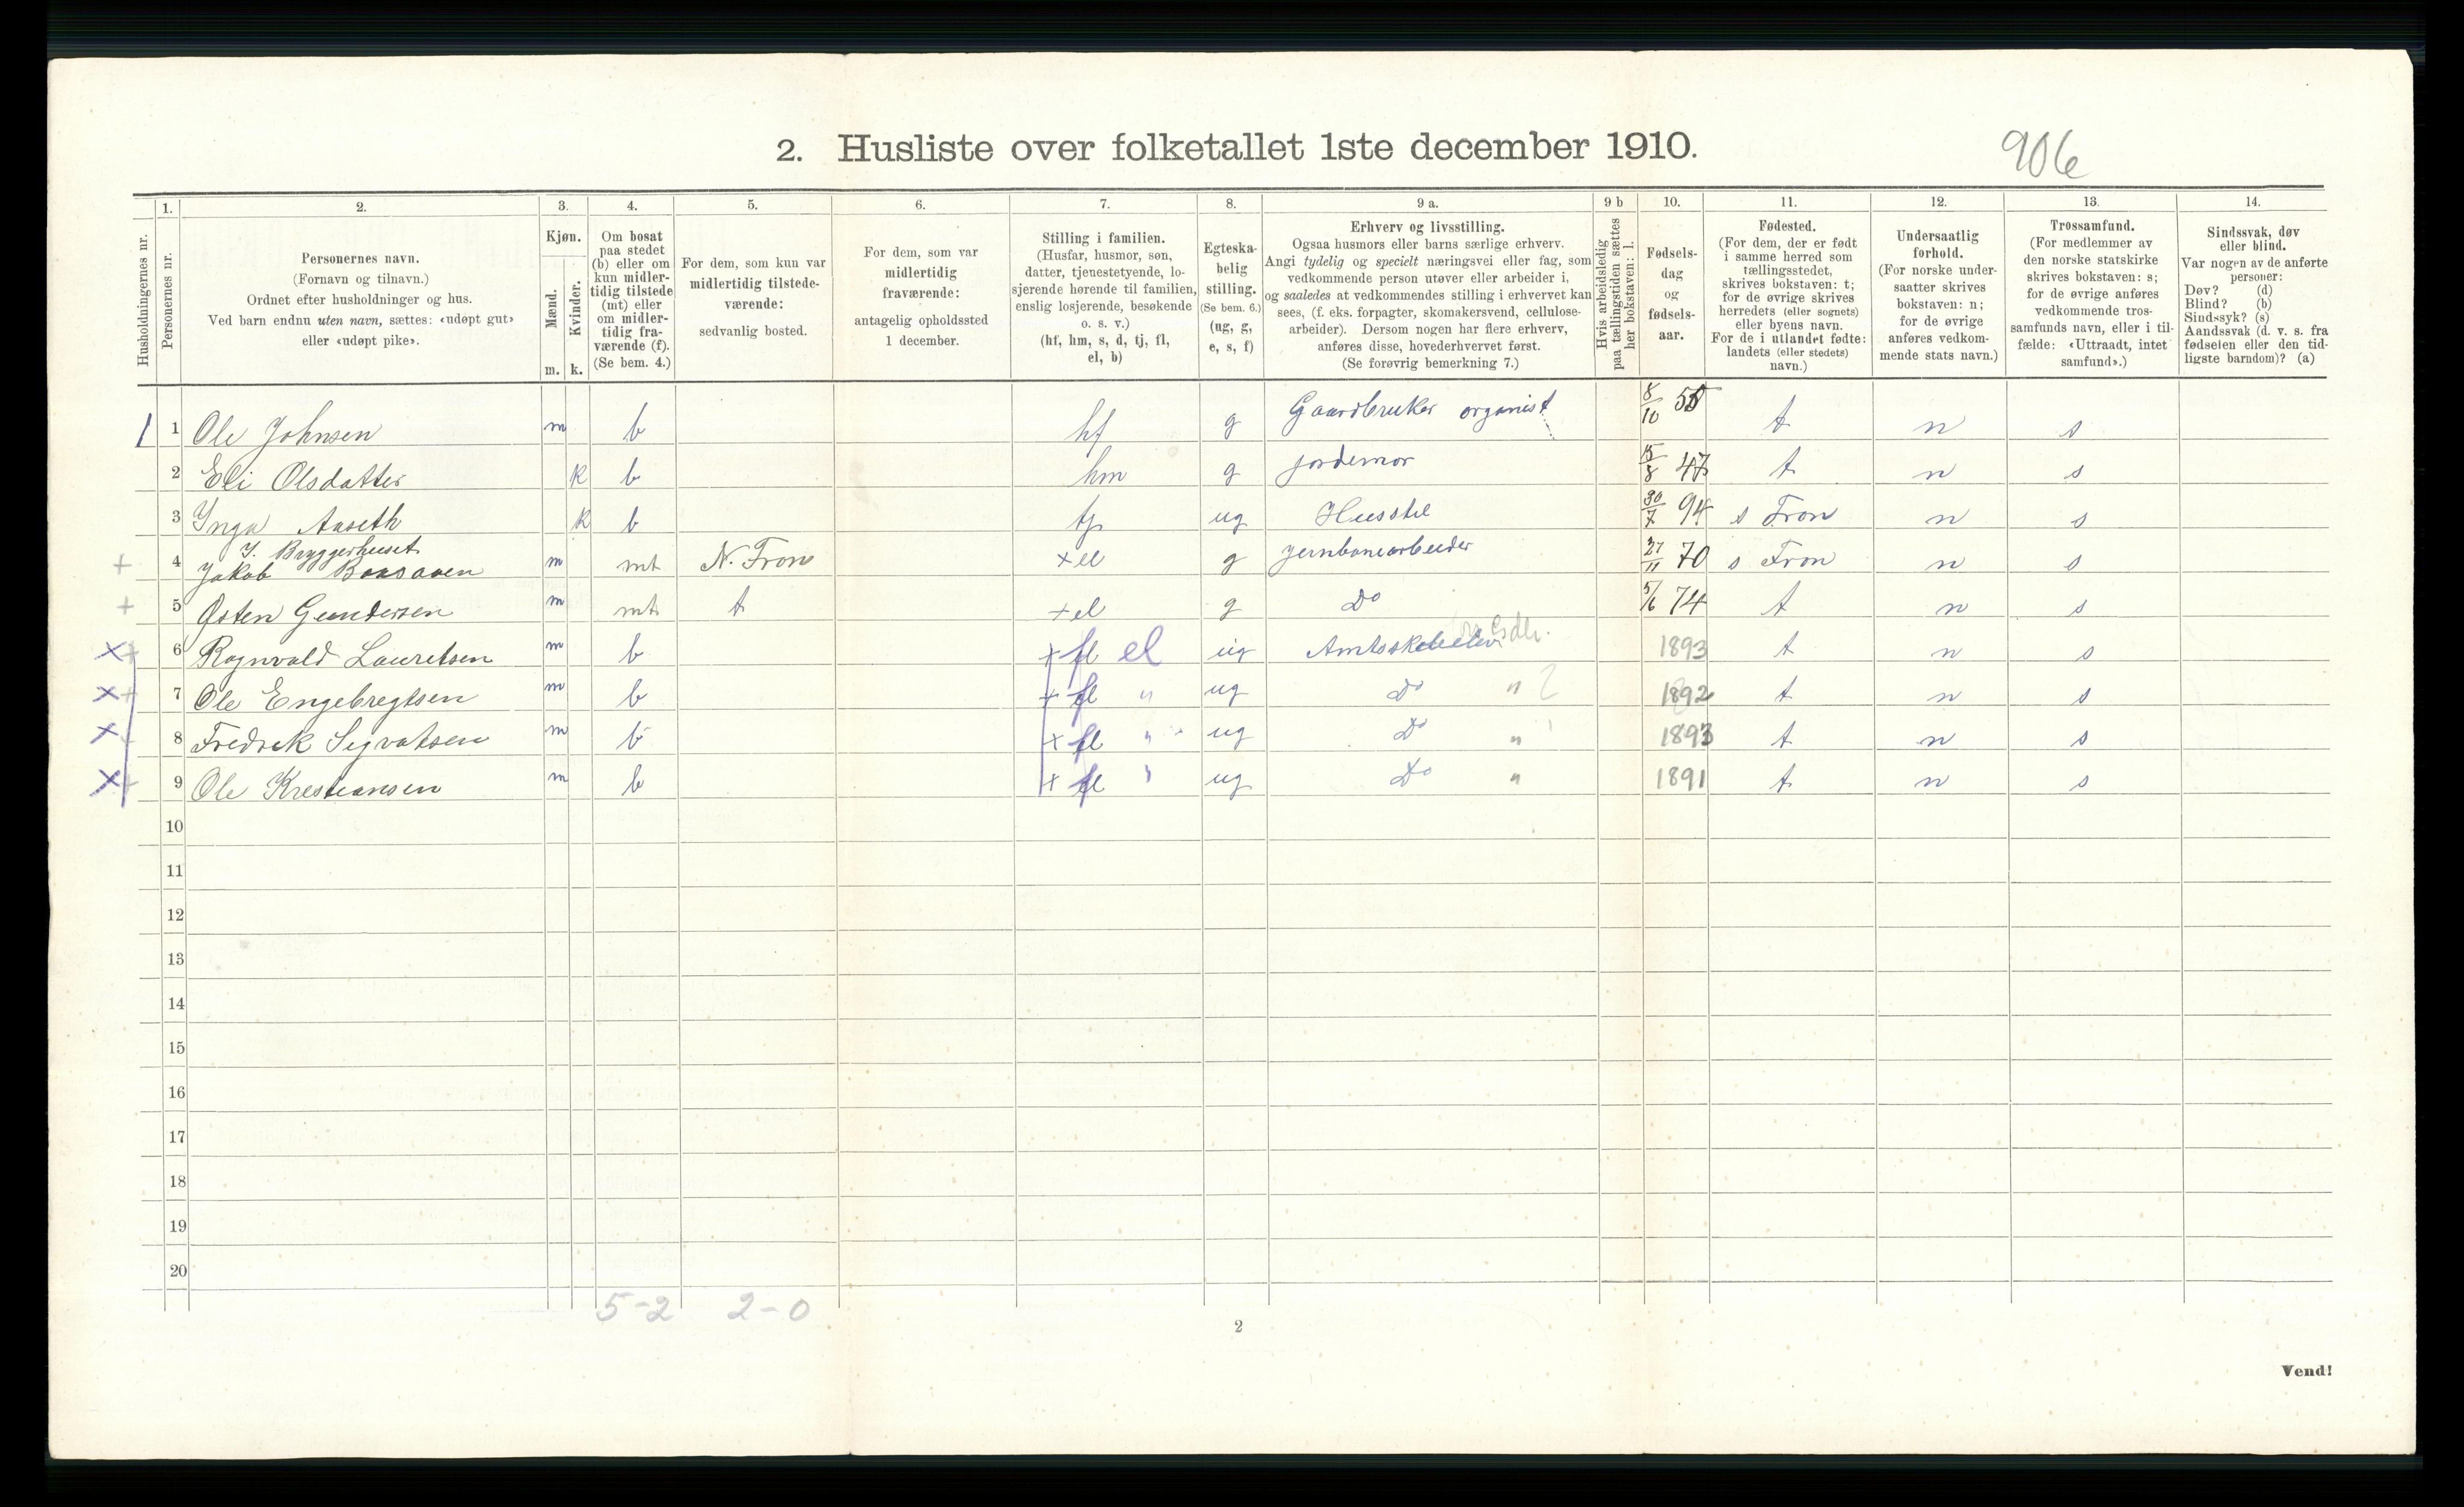 2. Husliste over folketallet 1ste december 1910.
906
Husholdningernes nr.
1.
Personernes nr.
2.
Personernes navn.
(Fornavn og tilnavn.)
Ordnet efter husholdninger og hus.
Ved barn endnu uten navn, sættes: «udøpt gut»
eller «udøpt pike».
3.
Kjøn.
Mænd.
Kvinder.
m. k.
4.
Om bosat
paa stedet
(b) eller om
kun midler-
tidig tilstede
(mt) eller
om midler-
tidig fra-
værende (f).
(Se bem. 4.)
5.
For dem, som kun var
midlertidig tilstede-
værende:
sedvanlig bosted.
6.
For dem, som var
midlertidig
fraværende:
antagelig opholdssted
1 december.
7.
Stilling i familien.
(Husfar, husmor, søn,
datter, tjenestetyende, lo-
sjerende hørende til familien,
enslig losjerende, besøkende
o. s. v.)
(hf, hm, s, d, tj, fl,
el, b)
8.
Egteska-
belig
stilling.
(Se bem. 6.)
(ug, g,
e, s, f)
9 a.
Erhverv og livsstilling.
Ogsaa husmors eller barns særlige erhverv.
Angi tydelig og specielt næringsvei eller fag, som
vedkommende person utøver eller arbeider i,
og saaledes at vedkommendes stilling i erhvervet kan
sees, (f. eks. forpagter, skomakersvend, cellulose-
arbeider). Dersom nogen har flere erhverv,
anføres disse, hovederhvervet først.
(Se forøvrig bemerkning 7.)
9 b
Hvis arbeidsledig
paa tællingstiden sættes
her bokstaven: l.
10.
Fødsels-
dag
og
fødsels-
aar.
11.
Fødested.
(For dem, der er født
i samme herred som
tællingsstedet,
skrives bokstaven: t;
for de øvrige skrives
herredets (eller sognets)
eller byens navn.
For de i utlandet fødte:
landets (eller stedets)
navn.)
12.
Undersaatlig
forhold.
(For norske under-
saatter skrives
bokstaven: n;
for de øvrige
anføres vedkom-
mende stats navn.)
13.
Trossamfund.
(For medlemmer av
den norske statskirke
skrives bokstaven: s;
for de øvrige anføres
vedkommende tros-
samfunds navn, eller i til-
fælde: «Uttraadt, intet
samfund».)
14.
Sindssvak, døv
eller blind.
Var nogen av de anførte
personer:
Døv? (d)
Blind? (b)
Sindssyk? (s)
Aandssvak (d. v. s. fra
fødselen eller den tid-
ligste barndom)? (a)
1 1 Ole Johnsen m b hf g Gaardbruker organist 8/10 55 t n s
2 Eli Olsdatter k b hm g jordemor 15/8 47 t n s
3 Inga Aaseth k b tj ug Husstel 30/7 94 s Fron n s
I. Bryggerhuset
+ 4 Jakob m mt N. Fron + el g jernbanearbeider 27/11 70 s Fron n s
+ 5 Østen Gundersen m mt t + el g Do 5/6 74 t n s
x + 6 Ragnvald Lauretsen m b + fl el ug Amtsskoleelev 1893 t n s
x + 7 Ole Engebregtsen m b + fl " ug Do " 1892 t n s
x 8 Fredrek Sigvatsen m b + fl " ug Do " 1893 t n s
x + 9 Ole Krestiansen m b + fl " ug Do " 1891 t n s
10
11
12
13
14
15
16
17
18
19
20
5-2 2-0
2
Vend!